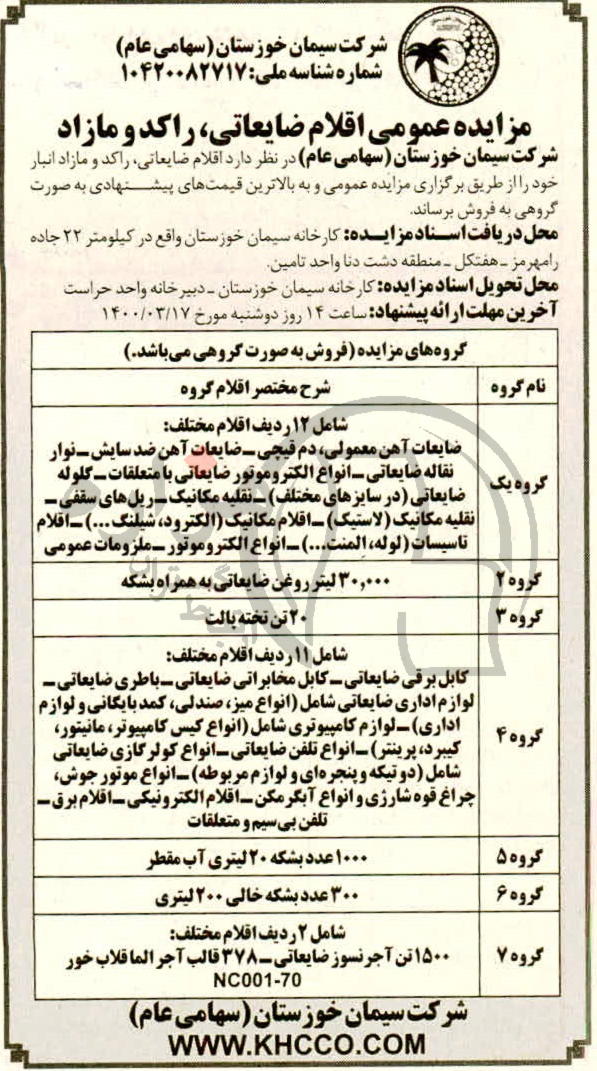 شرکت سیمان خوزستان (سهامی عام)
شماره شناسه ملی: ۱۰۴۲۰۰۸۲۷۱۷
مزایده عمومی اقلام ضایعاتی، راکد و مازاد
شرکت سیمان خوزستان (سهامی عام) در نظر دارد اقلام ضایعاتی، راکد و مازاد انبار
خود را از طریق برگزاری مزایده عمومی و به بالاترین قیمت‌های پیشنهادی به صورت
گروهی به فروش برساند.
محل دریافت اسناد مزایده: کارخانه سیمان خوزستان واقع در کیلومتر ۲۲ جاده
رامهرمز ـ هفتکل ـ منطقه دشت دنا واحد تامین.
محل تحویل اسناد مزایده: کارخانه سیمان خوزستان ـ دبیرخانه واحد حراست
آخرین مهلت ارائه پیشنهاد: ساعت ۱۴ روز دوشنبه مورخ ۱۴۰۰/۰۳/۱۷
گروه‌های مزایده (فروش به صورت گروهی می‌باشد.)
نام گروه شرح مختصر اقلام گروه
گروه یک
شامل ۱۲ ردیف اقلام مختلف:
ضایعات آهن معمولی، دم قیچی ـ ضایعات آهن ضد سایش ـ نوار
نقاله ضایعاتی ـ انواع الکتروموتور ضایعاتی با متعلقات ـ گلوله
ضایعاتی (در سایزهای مختلف) ـ نقلیه مکانیک ـ ریل‌های سقفی ـ
نقلیه مکانیک (لاستیک) ـ اقلام مکانیک (الکترود، شیلنگ ...) ـ اقلام
تاسیسات (لوله، المنت...) ـ انواع الکتروموتور ـ ملزومات عمومی
گروه ۲ ۳۰,۰۰۰ لیتر روغن ضایعاتی به همراه بشکه
گروه ۳ ۲۰ تن تخته پالت
گروه ۴
شامل ۱۱ ردیف اقلام مختلف:
کابل برقی ضایعاتی ـ کابل مخابراتی ضایعاتی ـ باطری ضایعاتی ـ
لوازم اداری ضایعاتی شامل (انواع میز، صندلی، کمد بایگانی و لوازم
اداری) ـ لوازم کامپیوتری شامل (انواع کیس کامپیوتر، مانیتور،
کیبرد، پرینتر) ـ انواع تلفن ضایعاتی ـ انواع کولر گازی ضایعاتی
شامل (دو تیکه و پنجره‌ای و لوازم مربوطه) ـ انواع موتور جوش،
چراغ قوه شارژی و انواع آبگرمکن ـ اقلام الکترونیکی ـ اقلام برق ـ
تلفن بی‌سیم و متعلقات
گروه ۵ ۱۰۰۰ عدد بشکه ۲۰ لیتری آب مقطر
گروه ۶ ۳۰۰ عدد بشکه خالی ۲۰۰ لیتری
گروه ۷
شامل ۲ ردیف اقلام مختلف:
۱۵۰۰ تن آجر نسوز ضایعاتی ـ ۳۷۸ قالب آجر الما قلاب خور
NC001-70
شرکت سیمان خوزستان (سهامی عام)
WWW.KHCCO.COM